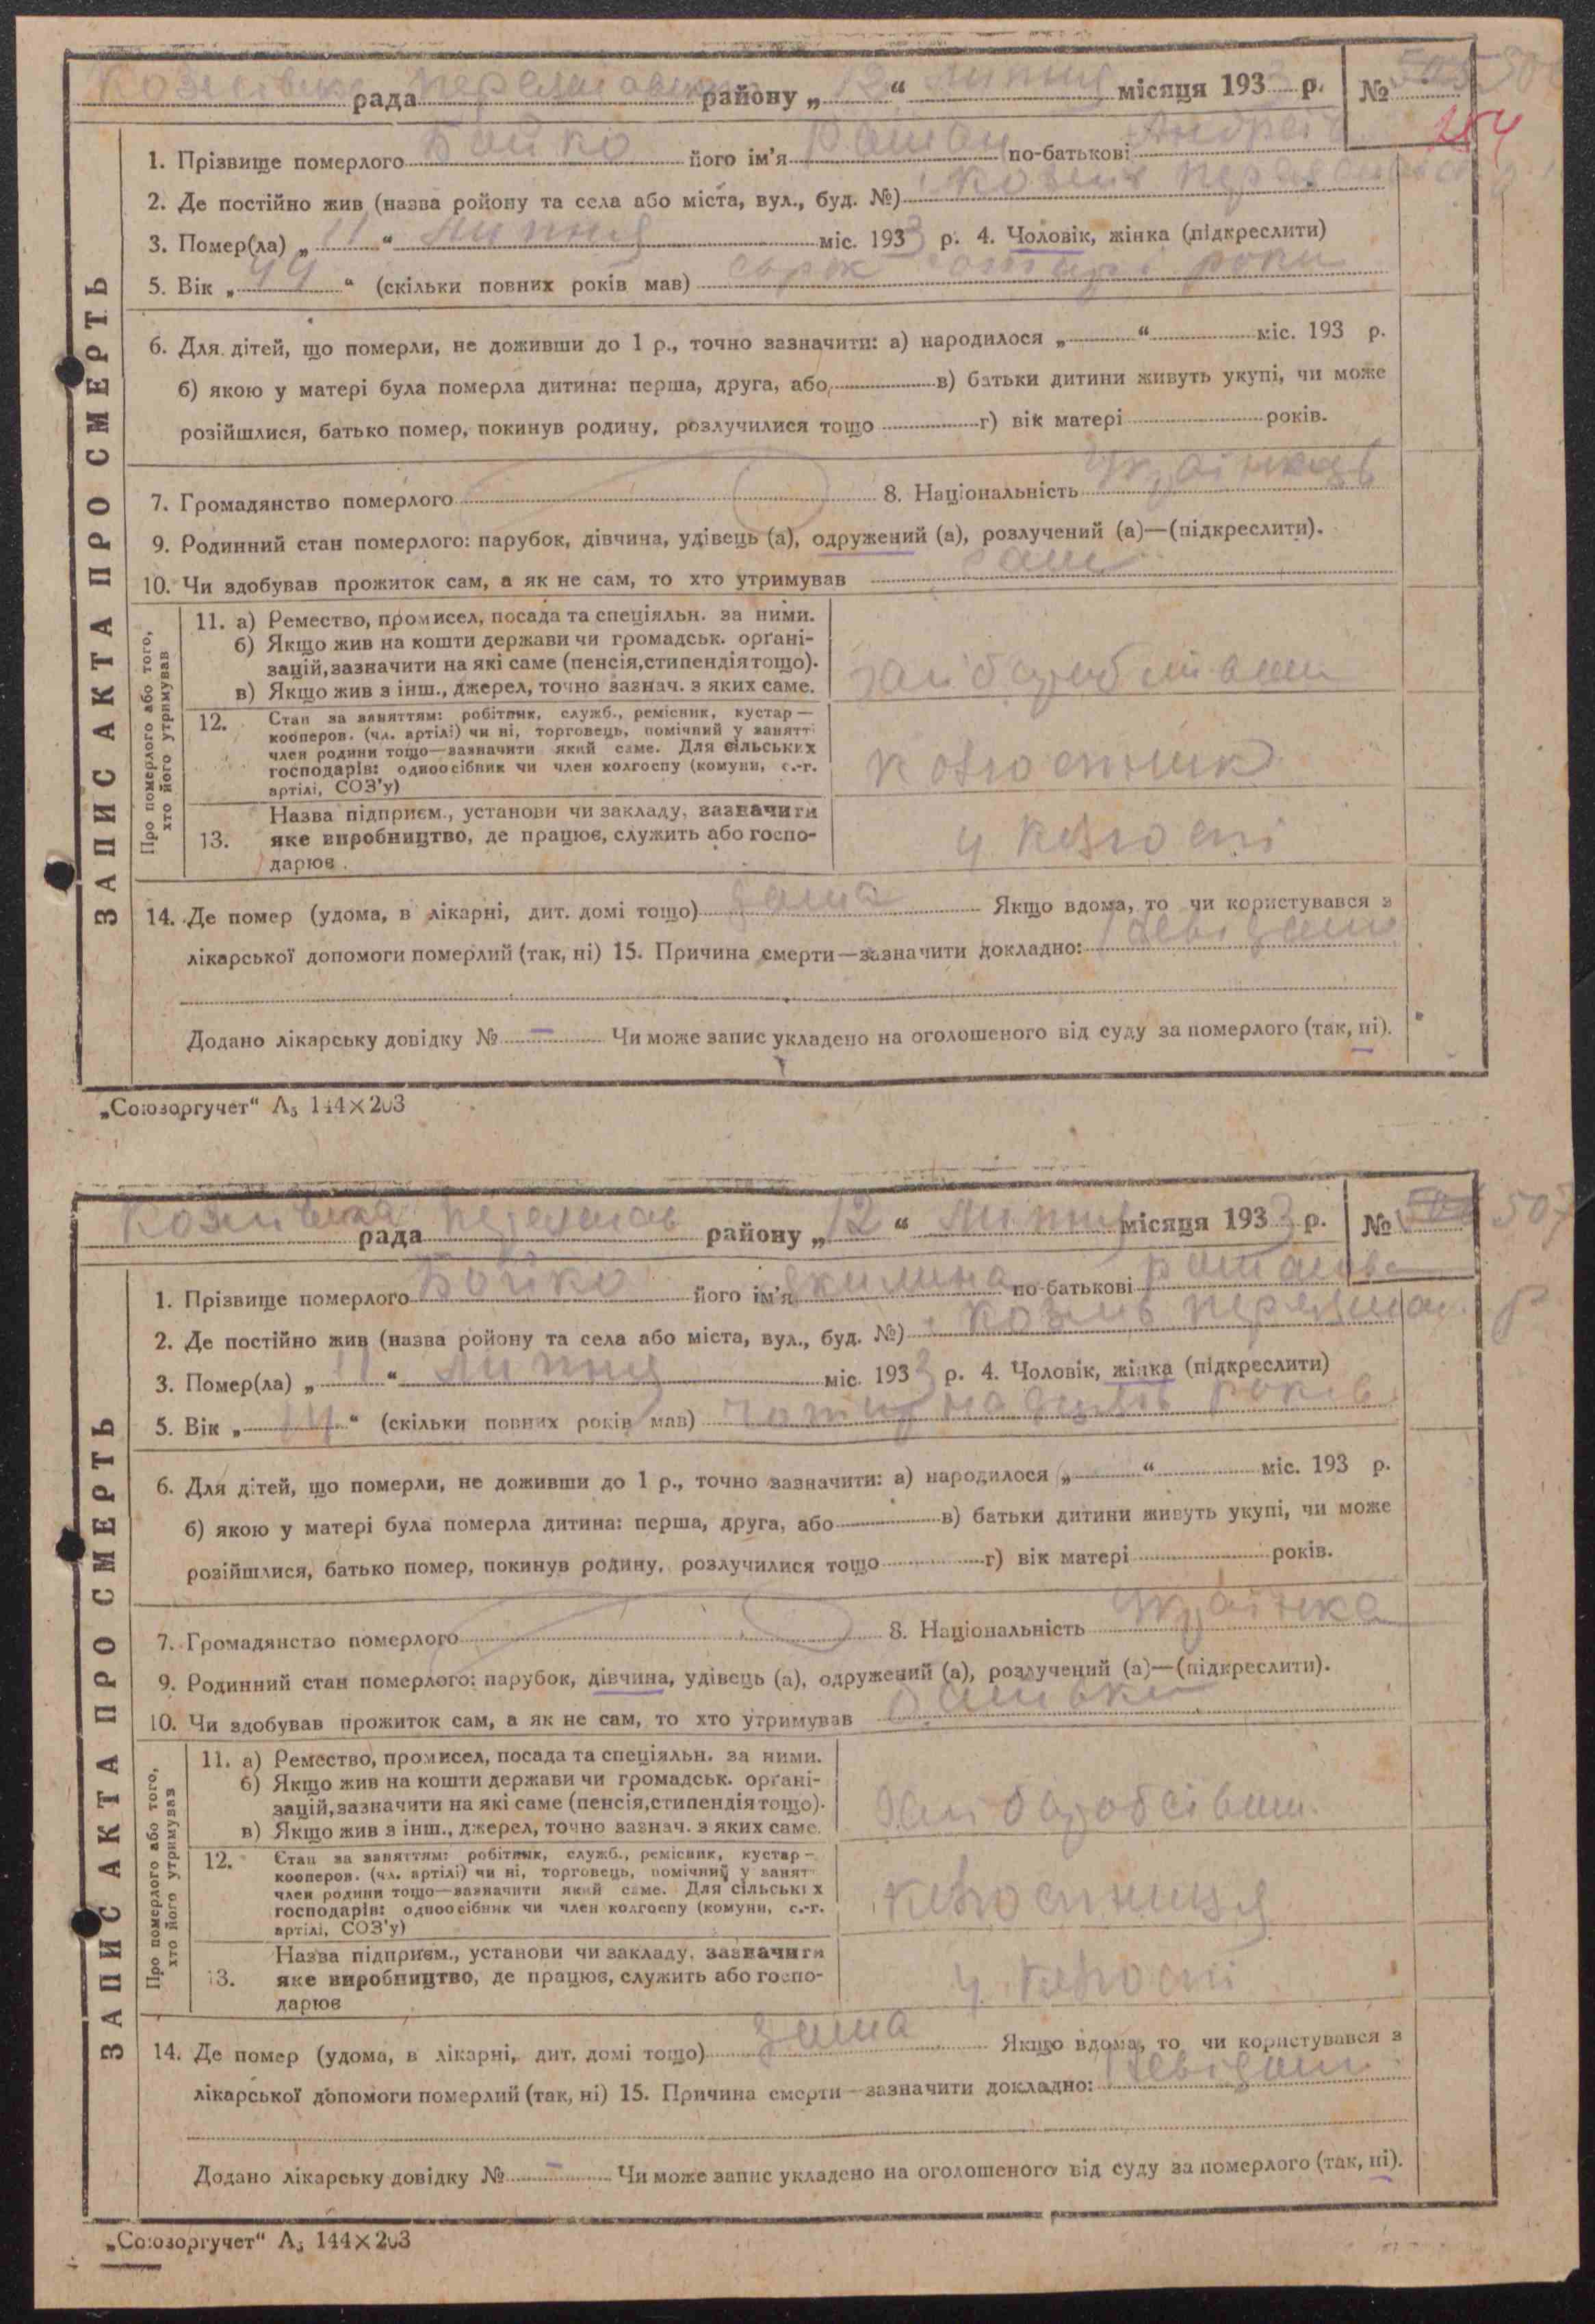 Козлівська рада Переяславськ району „12“ липня місяця 1933 р. № 505
254
ЗАПИС АКТА ПРО СМЕРТЬ
1. Прізвище померлого Бойко його ім’я Роман по-батькові Андреїв
2. Де постійно жив (назва ройону та села або міста, вул., буд. №) Козлів Переяславськ
3. Помер(ла) „11“ липня міс. 1933 р. 4. Чоловік, жінка (підкреслити)
5. Вік „44“ (скільки повних років мав) сорок чотирі роки
6. Для дітей, що померли, не доживши до 1 р., точно зазначити: а) народилося „ “ міс. 193 р.
б) якою у матері була померла дитина: перша, друга, або в) батьки дитини живуть укупі, чи може
розійшлися, батько помер, покинув родину, розлучилися тощо г) вік матері років.
7. Громадянство померлого 8. Національність
9. Родинний стан померлого: парубок, дівчина, удівець (а), одружений (а), розлучений (а)—(підкреслити).
10. Чи здобував прожиток сам, а як не сам, то хто утримував сам
Про померлого або того, хто його утримував
11. а) Ремество, промисел, посада та спеціяльн. за ними.
б) Якщо жив на кошти держави чи громадськ. орґані-
зацій, зазначити на які саме (пенсія, стипендія тощо).
в) Якщо жив з інш., джерел, точно зазнач. з яких саме.
хліборобством
12. Стан за заняттям: робітник, служб., ремісник, кустар—
кооперов. (чл. артілі) чи ні, торговець, помічний у занятт
член родини тощо—зазначити який саме. Для сільських
господарів: одноосібник чи член колгоспу (комуни, с.-г.
артілі, СОЗ’у)
колгоспник
13. Назва підприєм., установи чи закладу, зазначити
яке виробництво, де працює, служить або госпо-
дарює
у колгоспі
14. Де помер (удома, в лікарні, дит. домі тощо) дома Якщо вдома, то чи користувався з
лікарської допомоги померлий (так, ні) 15. Причина смерти—зазначити докладно: Невідомо
Додано лікарську довідку № – Чи може запис укладено на оголошеного від суду за померлого (так, ні).
„Союзоргучет“ А₅ 144×203
Козлівська рада Переяслав району „12“ липня місяця 1933 р. № 507
ЗАПИС АКТА ПРО СМЕРТЬ
1. Прізвище померлого Бойко його ім’я Якилина по-батькові Романова
2. Де постійно жив (назва ройону та села або міста, вул., буд. №) Козлів Переяслав. р
3. Помер(ла) „11“ липня міс. 1933 р. 4. Чоловік, жінка (підкреслити)
5. Вік „14“ (скільки повних років мав) чотирнадцять років
6. Для дітей, що померли, не доживши до 1 р., точно зазначити: а) народилося „ “ міс. 193 р.
б) якою у матері була померла дитина: перша, друга, або в) батьки дитини живуть укупі, чи може
розійшлися, батько помер, покинув родину, розлучилися тощо г) вік матері років.
7. Громадянство померлого 8. Національність Українка
9. Родинний стан померлого: парубок, дівчина, удівець (а), одружений (а), розлучений (а)—(підкреслити).
10. Чи здобував прожиток сам, а як не сам, то хто утримував батьки
Про померлого або того, хто його утримував
11. а) Ремество, промисел, посада та спеціяльн. за ними.
б) Якщо жив на кошти держави чи громадськ. орґані-
зацій, зазначити на які саме (пенсія, стипендія тощо).
в) Якщо жив з інш., джерел, точно зазнач. з яких саме.
хліборобством
12. Стан за заняттям: робітник, служб., ремісник, кустар—
кооперов. (чл. артілі) чи ні, торговець, помічний у занят
член родини тощо—зазначити який саме. Для сільських
господарів: одноосібник чи член колгоспу (комуни, с.-г.
артілі, СОЗ’у)
колгоспниця
13. Назва підприєм., установи чи закладу, зазначити
яке виробництво, де працює, служить або госпо-
дарює
у колгоспі
14. Де помер (удома, в лікарні, дит. домі тощо) дома Якщо вдома, то чи користувався з
лікарської допомоги померлий (так, ні) 15. Причина смерти—зазначити докладно: Невідомо
Додано лікарську довідку № – Чи може запис укладено на оголошеного від суду за померлого (так, ні).
„Союзоргучет“ А₅ 144×203